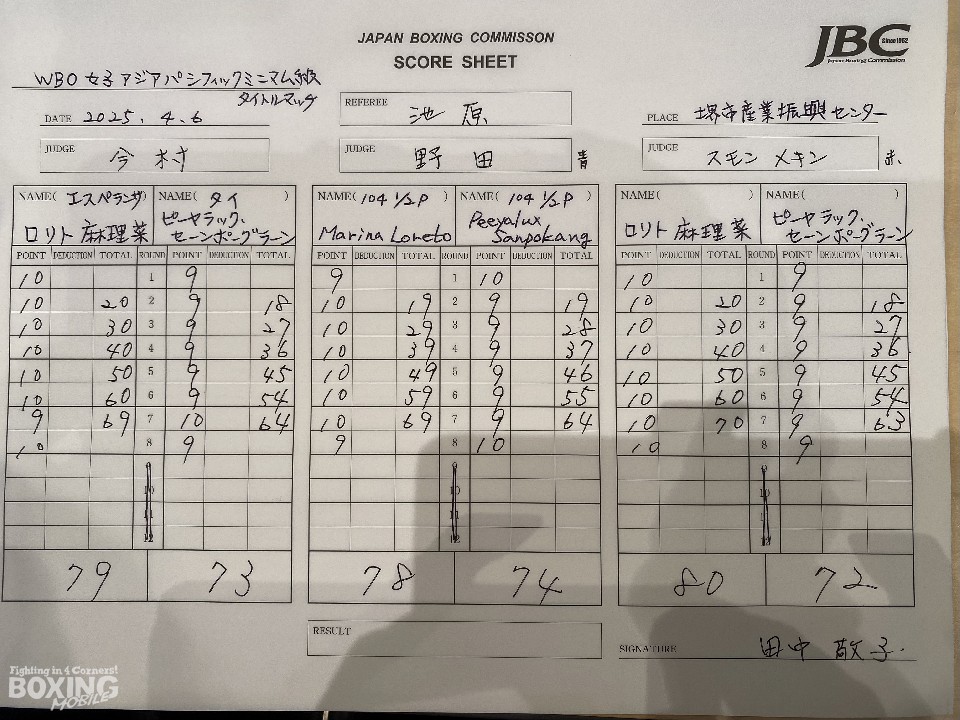 JAPAN BOXING COMMISSON
SCORE SHEET
JBC
Since 1952
Japan Boxing Commission
WBO 女子 アジアパシフィックミニマム級
タイトルマッチ
DATE 2025. 4. 6
REFEREE 池原
PLACE 堺市産業振興センター
JUDGE 今村
JUDGE 野田 青
JUDGE スモン メキン 赤.
NAME( エスペランサ) NAME( タイ ) NAME(104 1/2 P ) NAME( 104 1/2 P ) NAME( ) NAME( )
ロリト 麻理菜 ピーヤラック. セーンポーグラーン Marina Loreto Peeyalux Sanpokang ロリト 麻理菜 ピーヤラック. セーンポーグラーン
POINT DEDUCTION TOTAL ROUND POINT DEDUCTION TOTAL POINT DEDUCTION TOTAL ROUND POINT DEDUCTION TOTAL POINT DEDUCTION TOTAL ROUND POINT DEDUCTION TOTAL
10 1 9 9 1 10 10 1 9
10 20 2 9 18 10 19 2 9 19 10 20 2 9 18
10 30 3 9 27 10 29 3 9 28 10 30 3 9 27
10 40 4 9 36 10 39 4 9 37 10 40 4 9 36
10 50 5 9 45 10 49 5 9 46 10 50 5 9 45
10 60 6 9 54 10 59 6 9 55 10 60 6 9 54
9 69 7 10 64 10 69 7 9 64 10 70 7 9 63
10 8 9 9 8 10 10 8 9
9 9 9
10 10 10
11 11 11
12 12 12
79 73 78 74 80 72
RESULT
SIGNATURE 田中 敬子.
Fighting in 4 Corners!
BOXING
MOBILE